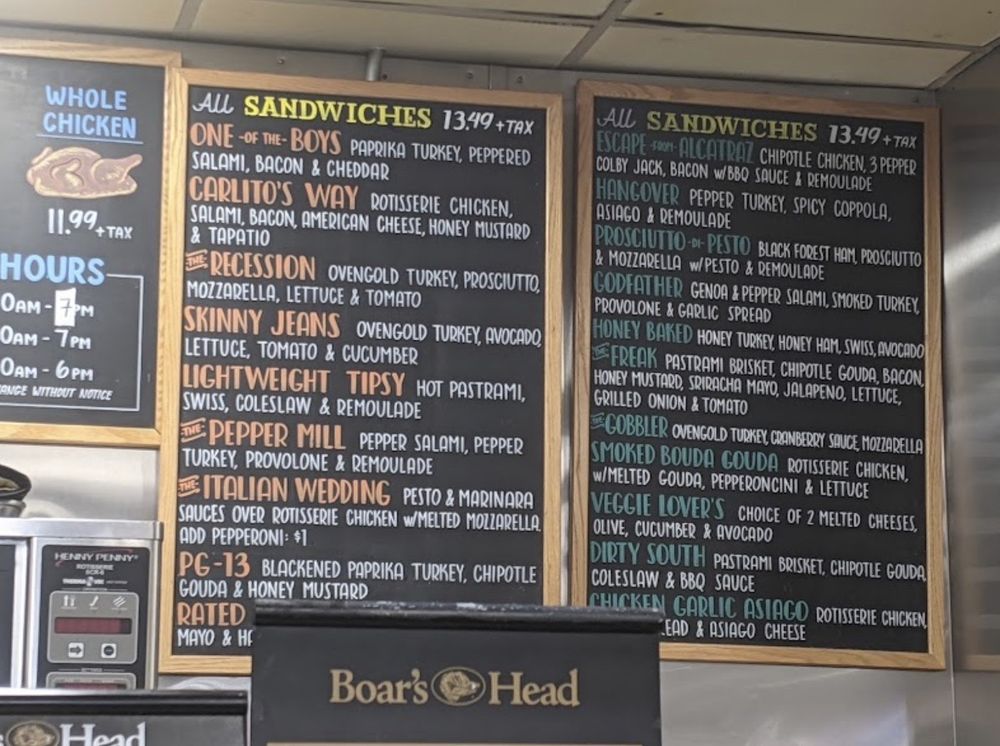 WHOLE
CHICKEN
11.99 + TAX
HOURS
0AM - 7PM
0AM - 7PM
0AM - 6PM
ANGE WITHOUT NOTICE
All SANDWICHES 13.49 + TAX
ONE -OF THE- BOYS PAPRIKA TURKEY, PEPPERED
SALAMI, BACON & CHEDDAR
CARLITO'S WAY ROTISSERIE CHICKEN,
SALAMI, BACON, AMERICAN CHEESE, HONEY MUSTARD
& TAPATIO
THE RECESSION OVENGOLD TURKEY, PROSCIUTTO,
MOZZARELLA, LETTUCE & TOMATO
SKINNY JEANS OVENGOLD TURKEY, AVOCADO,
LETTUCE, TOMATO & CUCUMBER
LIGHTWEIGHT TIPSY HOT PASTRAMI,
SWISS, COLESLAW & REMOULADE
THE PEPPER MILL PEPPER SALAMI, PEPPER
TURKEY, PROVOLONE & REMOULADE
THE ITALIAN WEDDING PESTO & MARINARA
SAUCES OVER ROTISSERIE CHICKEN w/MELTED MOZZARELLA.
ADD PEPPERONI: $1
PG-13 BLACKENED PAPRIKA TURKEY, CHIPOTLE
GOUDA & HONEY MUSTARD
RATED
MAYO & HA
All SANDWICHES 13.49 + TAX
ESCAPE -FROM- ALCATRAZ CHIPOTLE CHICKEN, 3 PEPPER
COLBY JACK, BACON w/BBQ SAUCE & REMOULADE
HANGOVER PEPPER TURKEY, SPICY COPPOLA,
ASIAGO & REMOULADE
PROSCIUTTO -DI- PESTO BLACK FOREST HAM, PROSCIUTTO
& MOZZARELLA w/PESTO & REMOULADE
GODFATHER GENOA & PEPPER SALAMI, SMOKED TURKEY,
PROVOLONE & GARLIC SPREAD
HONEY BAKED HONEY TURKEY, HONEY HAM, SWISS, AVOCADO
THE FREAK PASTRAMI BRISKET, CHIPOTLE GOUDA, BACON,
HONEY MUSTARD, SRIRACHA MAYO, JALAPENO, LETTUCE,
GRILLED ONION & TOMATO
THE GOBBLER OVENGOLD TURKEY, CRANBERRY SAUCE, MOZZARELLA
SMOKED BOUDA GOUDA ROTISSERIE CHICKEN,
w/MELTED GOUDA, PEPPERONCINI & LETTUCE
VEGGIE LOVER'S CHOICE OF 2 MELTED CHEESES,
OLIVE, CUCUMBER & AVOCADO
DIRTY SOUTH PASTRAMI BRISKET, CHIPOTLE GOUDA,
COLESLAW & BBQ SAUCE
CHICKEN GARLIC ASIAGO ROTISSERIE CHICKEN,
EAD & ASIAGO CHEESE
HENNY PENNY
ROTISSERIE
SCR-6
Boar's Head
s Head